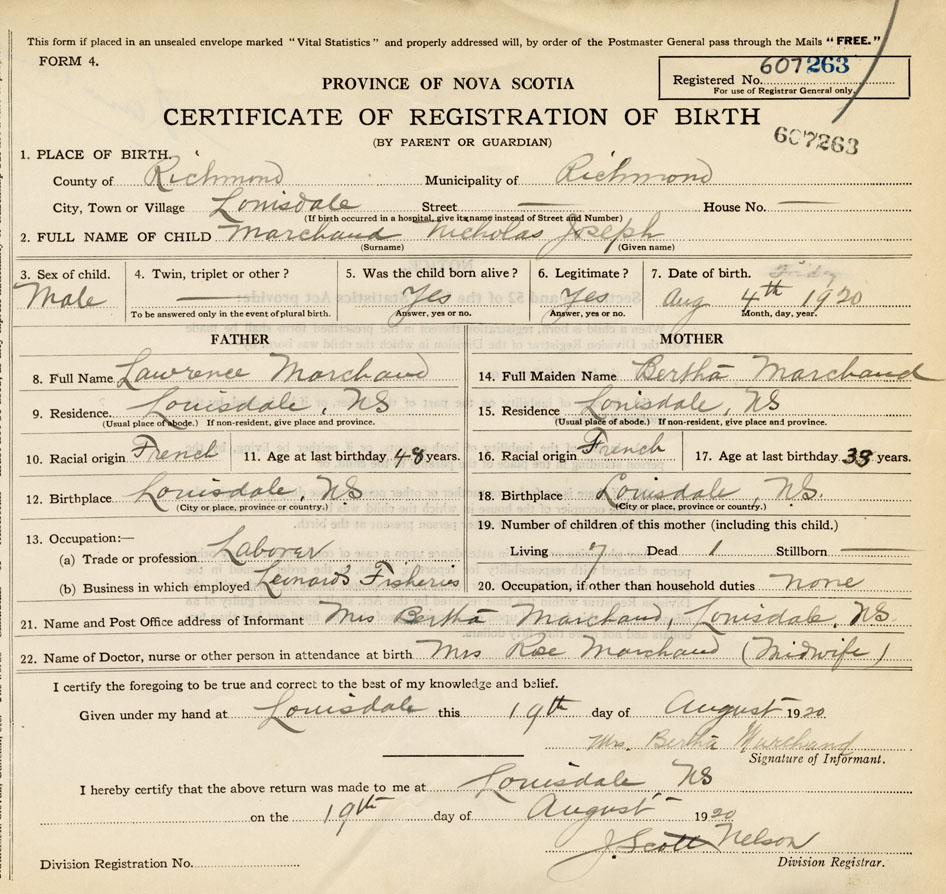 This form if placed in an unsealed envelope marked "Vital Statistics" and properly addressed will, by order of the Postmaster General pass through the Mails "FREE."
FORM 4.
Registered No. 607263
For use of Registrar General only.
PROVINCE OF NOVA SCOTIA
CERTIFICATE OF REGISTRATION OF BIRTH
(BY PARENT OR GUARDIAN)
607263
1. PLACE OF BIRTH.
County of Richmond Municipality of Richmond
City, Town or Village Louisdale Street — House No. —
(If birth occurred in a hospital, give its name instead of Street and Number)
2. FULL NAME OF CHILD Marchand Nicholas Joseph
(Surname) (Given name)
3. Sex of child. 4. Twin, triplet or other? 5. Was the child born alive? 6. Legitimate? 7. Date of birth. Friday
Male — Yes Yes Aug 4th 1920
To be answered only in the event of plural birth. Answer, yes or no. Answer, yes or no. Month, day, year.
FATHER
8. Full Name Lawrence Marchand
9. Residence. Louisdale, NS
(Usual place of abode.) If non-resident, give place and province.
10. Racial origin French 11. Age at last birthday 48 years.
12. Birthplace Louisdale, NS
(City or place, province or country.)
13. Occupation:—
(a) Trade or profession Laborer
(b) Business in which employed Leonard's Fisheries
MOTHER
14. Full Maiden Name Bertha Marchand
15. Residence Louisdale, NS
(Usual place of abode.) If non-resident, give place and province.
16. Racial origin French 17. Age at last birthday 33 years.
18. Birthplace Louisdale, NS.
(City or place, province or country.)
19. Number of children of this mother (including this child.)
Living 7 Dead 1 Stillborn —
20. Occupation, if other than household duties none
21. Name and Post Office address of Informant Mrs Bertha Marchand, Louisdale, NS
22. Name of Doctor, nurse or other person in attendance at birth Mrs Rose Marchand (Midwife)
I certify the foregoing to be true and correct to the best of my knowledge and belief.
Given under my hand at Louisdale this 19th day of August 1920
Mrs. Bertha Marchand
Signature of Informant.
I hereby certify that the above return was made to me at Louisdale NS
on the 19th day of August 1920
J. Scott Nelson
Division Registration No. Division Registrar.